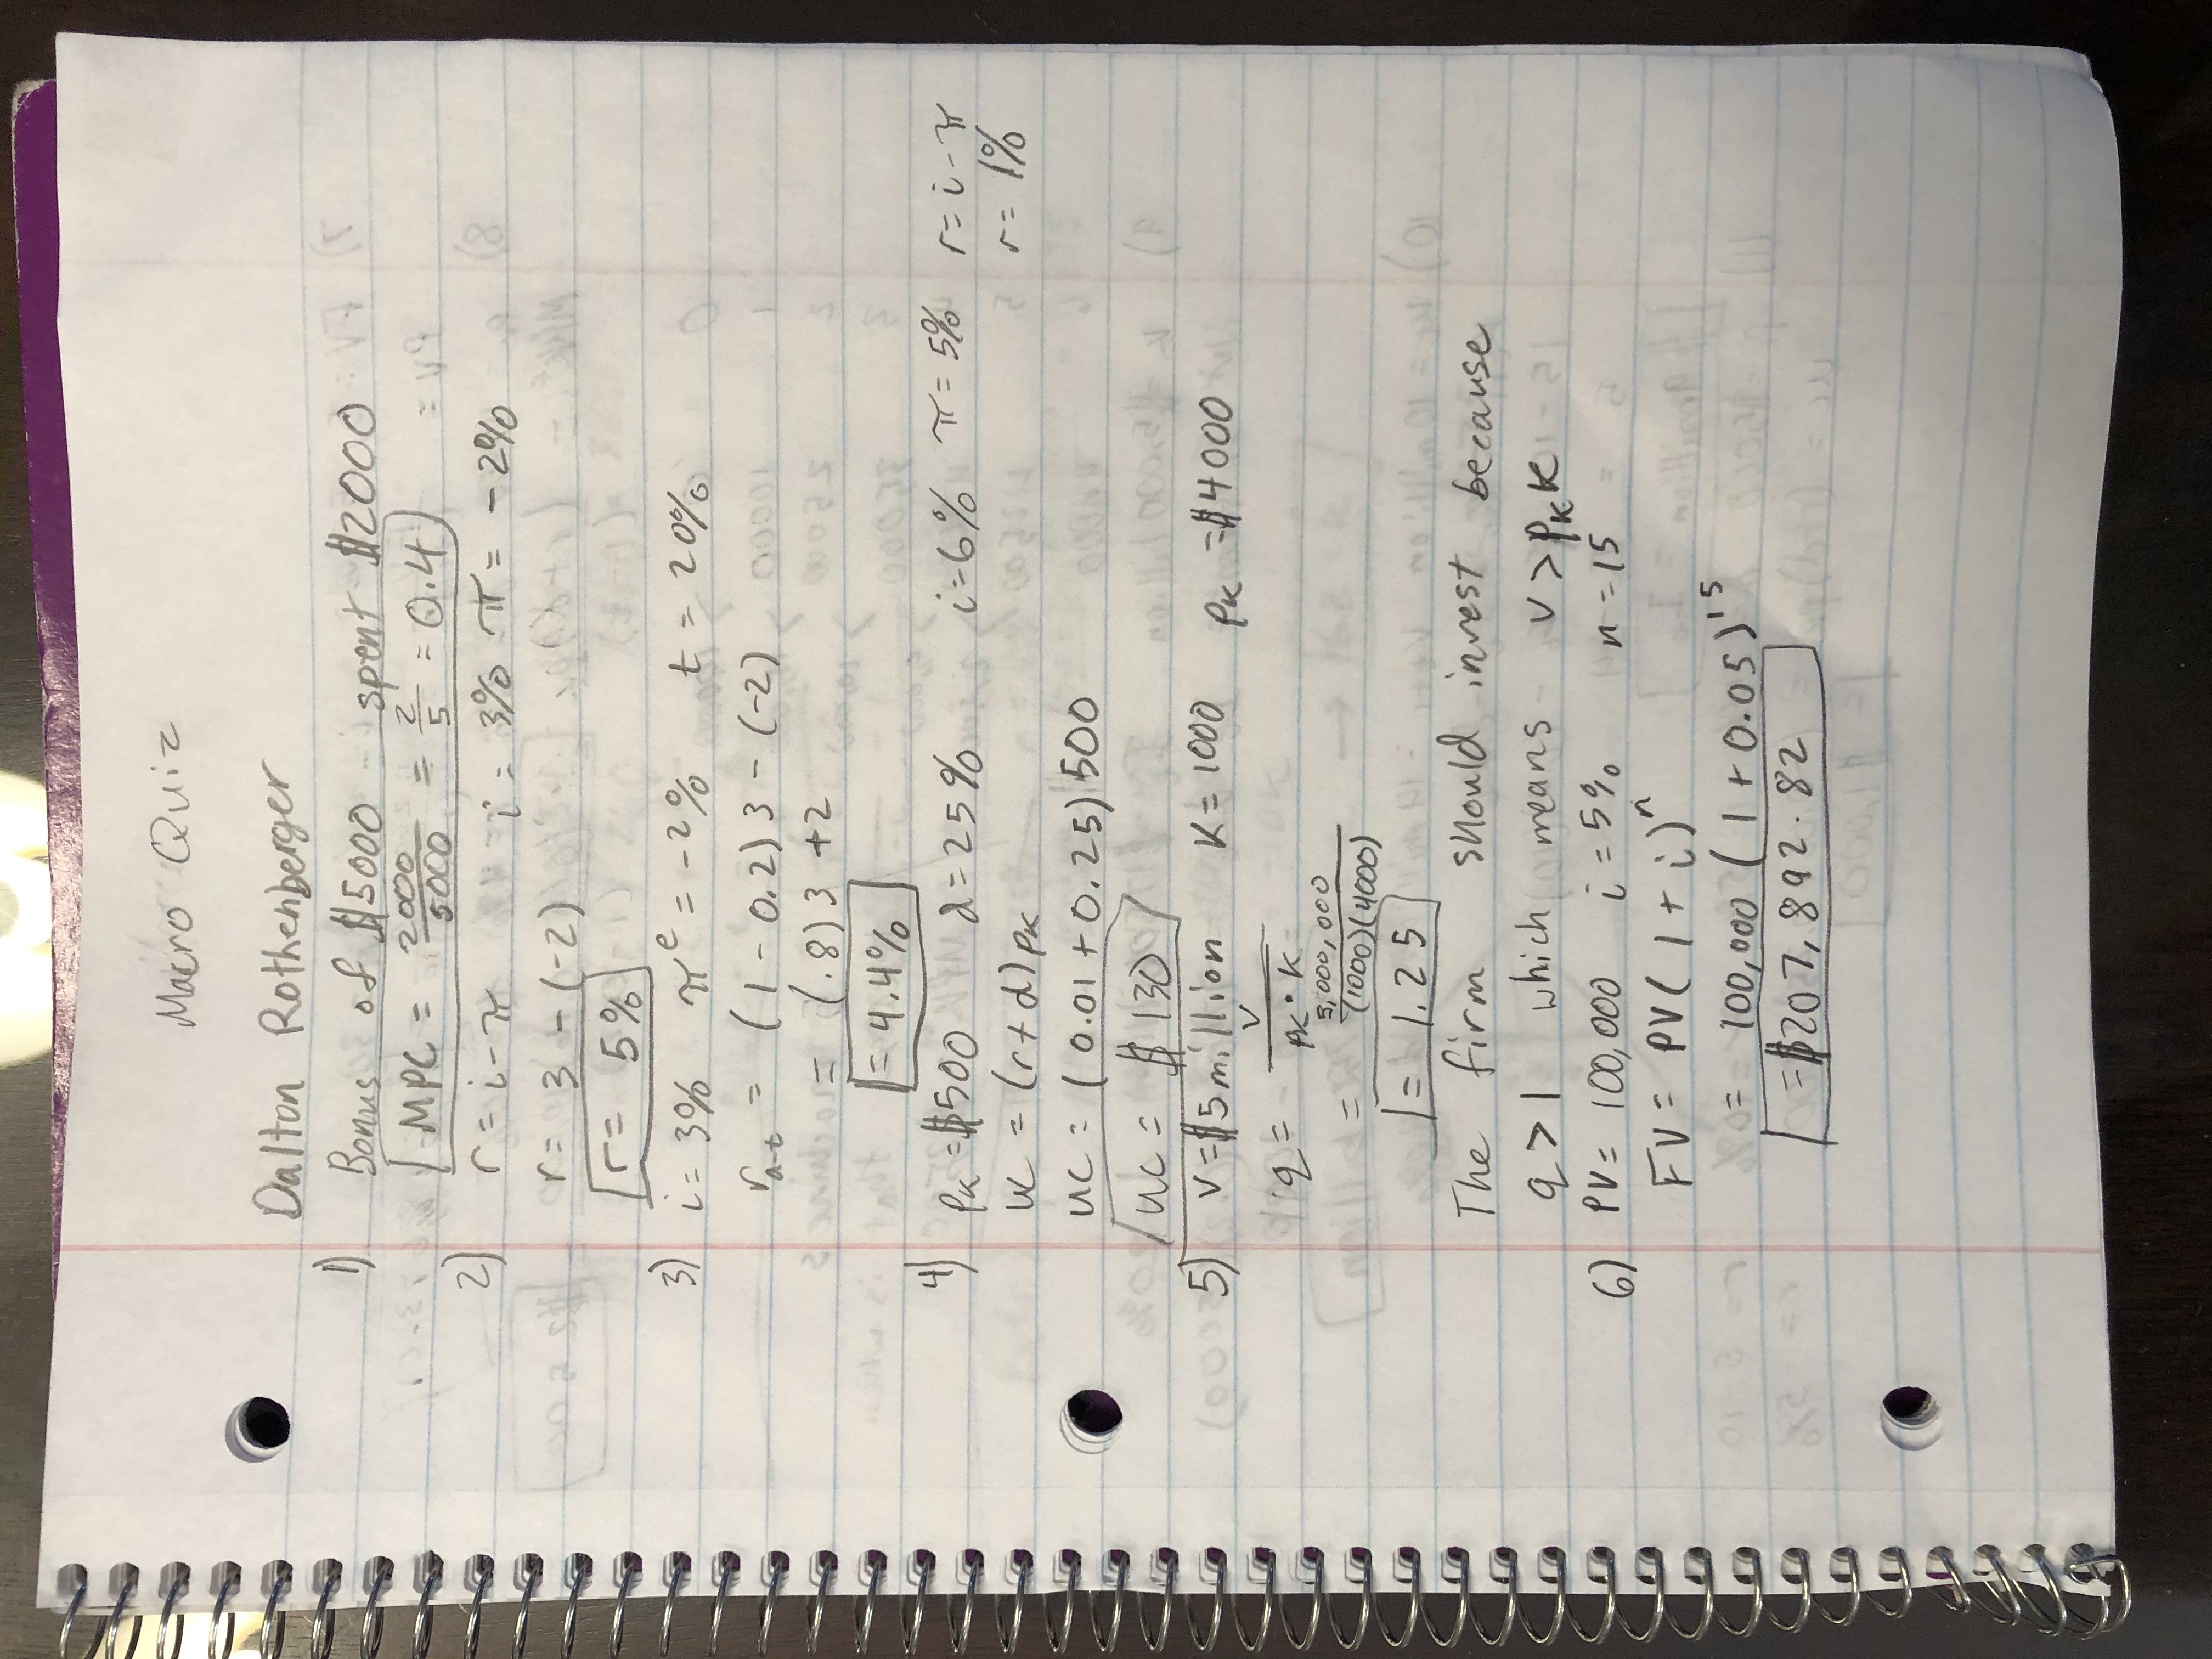 Macro Quiz
Dalton Rothenberger
1) Bonus of $5000 spent $2000
MPC = 2000/5000 = 2/5 = 0.4
2) r = i - π i = 3% π = -2%
r = 3 - (-2)
r = 5%
3) i = 3% π^e = -2% t = 20%
r_a-t = (1 - 0.2) 3 - (-2)
= (.8) 3 + 2
= 4.4%
4) p_K = $500 d = 25% i = 6% π = 5% r = i - π
uc = (r + d) p_K r = 1%
uc = (0.01 + 0.25) 500
uc = $130
5) V = $5 million K = 1000 p_K = $4000
q = V / p_K · K
= 5,000,000 / (1000)(4000)
= 1.25
The firm should invest because
q > 1 which means V > p_K K
6) PV = 100,000 i = 5% n = 15
FV = PV(1 + i)^n
= 100,000 (1 + 0.05)^15
= $207,892.82